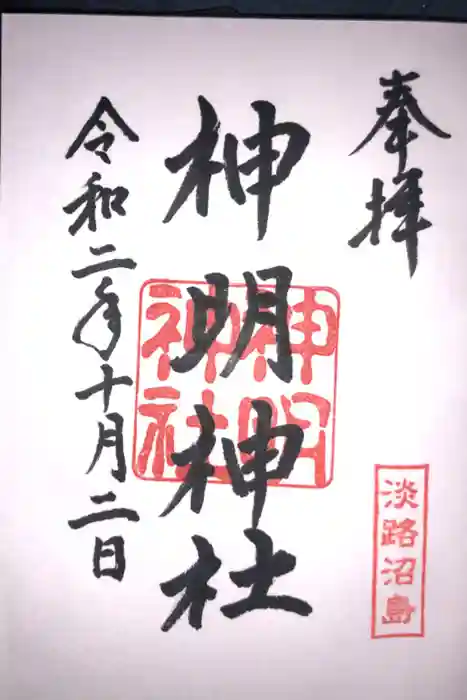 奉拝
淡路沼島
神明神社
神明
神社
令和二年十月二日